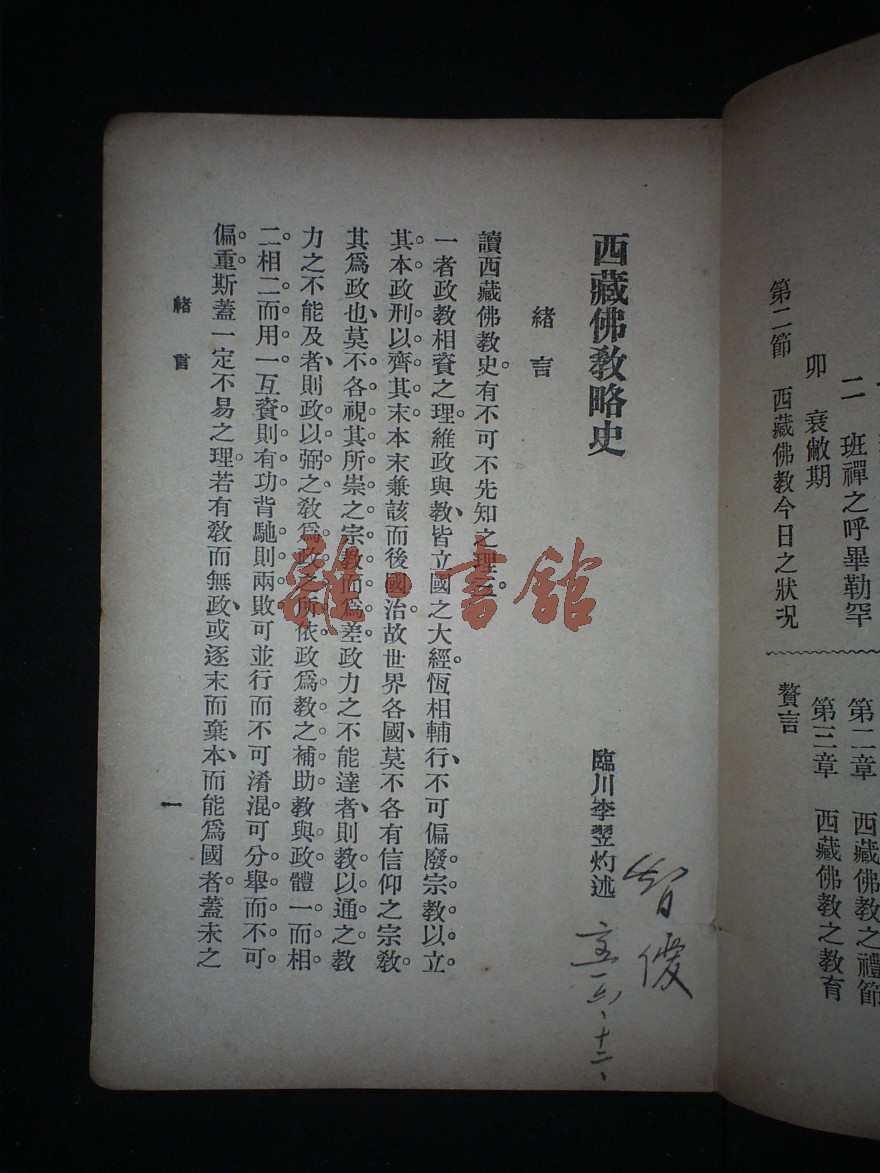 二　班禪之呼畢勒罕
卯　衰敝期
第二節　西藏佛教今日之狀況
第二章　西藏佛教之禮節
第三章　西藏佛教之教育
贅言
西藏佛教略史
臨川李翊灼述
智優
緒言
讀西藏佛教史。有不可不先知之理三。
一者政教相資之理。維政與教、皆立國之大經。恆相輔行、不可偏廢。宗教以立
其本。政刑以齊其末。本末兼該。而後國治。故世界各國、莫不各有信仰之宗教
其爲政也、莫不各視其所崇之宗教而爲差。政力之不能達者、則教以通之。教
力之不能及者、則政以弼之。教爲政之所依。政爲教之補助。教與政體一而相
二。相二而用一。互資則有功。背馳則兩敗。可並行而不可淆混。可分舉而不可
偏重。斯蓋一定不易之理。若有教而無政、或逐末而棄本、而能爲國者。蓋未之
緒言
一
雜·書館